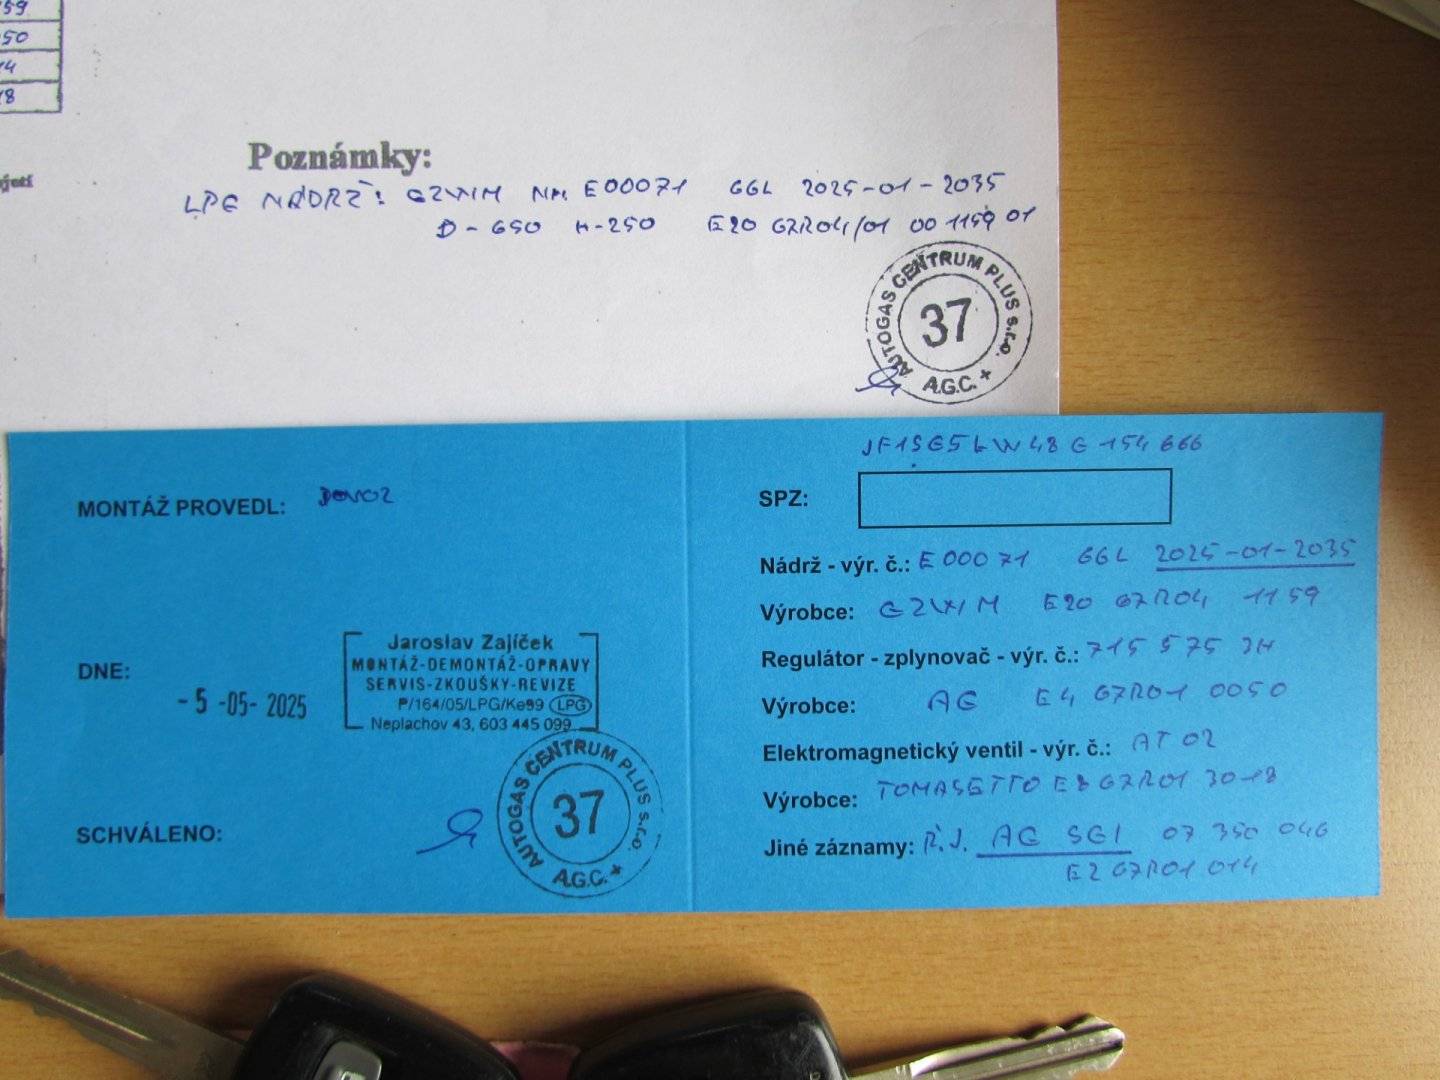 59
50
14
18
Poznámky:
LPG NÁDRŽ: GZWM NA. E00071 GGL 2025-01-2035
D-650 H-250 E20 67R04/01 00 1159 01
AUTOGAS CENTRUM PLUS s.r.o.
37
A.G.C. +
JF1SG5LW48G154666
MONTÁŽ PROVEDL: DOVOZ
SPZ:
Nádrž - výr. č.: E00071 GGL 2025-01-2035
Výrobce: GZWM E20 67R04 1159
Regulátor - zplynovač - výr. č.: 715 575 JH
Výrobce: AG E4 67R01 0050
Elektromagnetický ventil - výr. č.: AT 02
Výrobce: TOMASETTO E8 67R01 3018
Jiné záznamy: Ř.J. AG SGI 07 350 046
E2 67R01 014
DNE:
- 5 -05- 2025
Jaroslav Zajíček
MONTÁŽ-DEMONTÁŽ-OPRAVY
SERVIS-ZKOUŠKY-REVIZE
P/164/05/LPG/Ke99 LPG
Neplachov 43, 603 445 099
SCHVÁLENO:
AUTOGAS CENTRUM PLUS s.r.o.
37
A.G.C. +